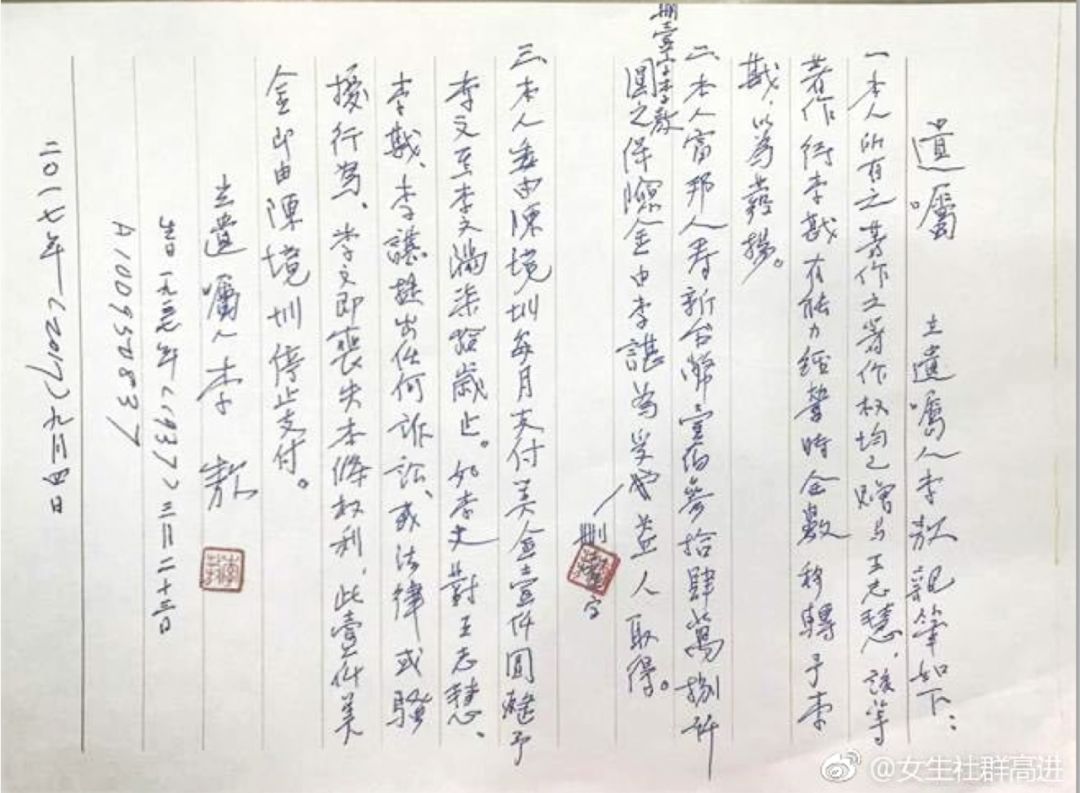 遺囑 立遺囑人李敖親筆如下：
一、本人所有之著作之著作权均已赠与王志慧，該等
著作待李戡有能力經營時全數移轉予李
戡，以為發揚。
二、本人富邦人寿新台幣壹佰參拾肆萬捌仟
圓之保險金由李諶為受益人取得。
刪壹字李敖
刪
字
三、本人委由陳境圳每月支付美金壹仟圓整予
李文至李文滿柒拾歲止。如李文對王志慧、
李戡、李諶提出任何訴訟、或法律或騷
擾行為，李文即喪失本條权利，此壹仟美
金即由陳境圳停止支付。
立遺囑人李敖
生日 一九三七年（1937）
A100950837
二〇一七年（2017）九月四日
@女生社群高进